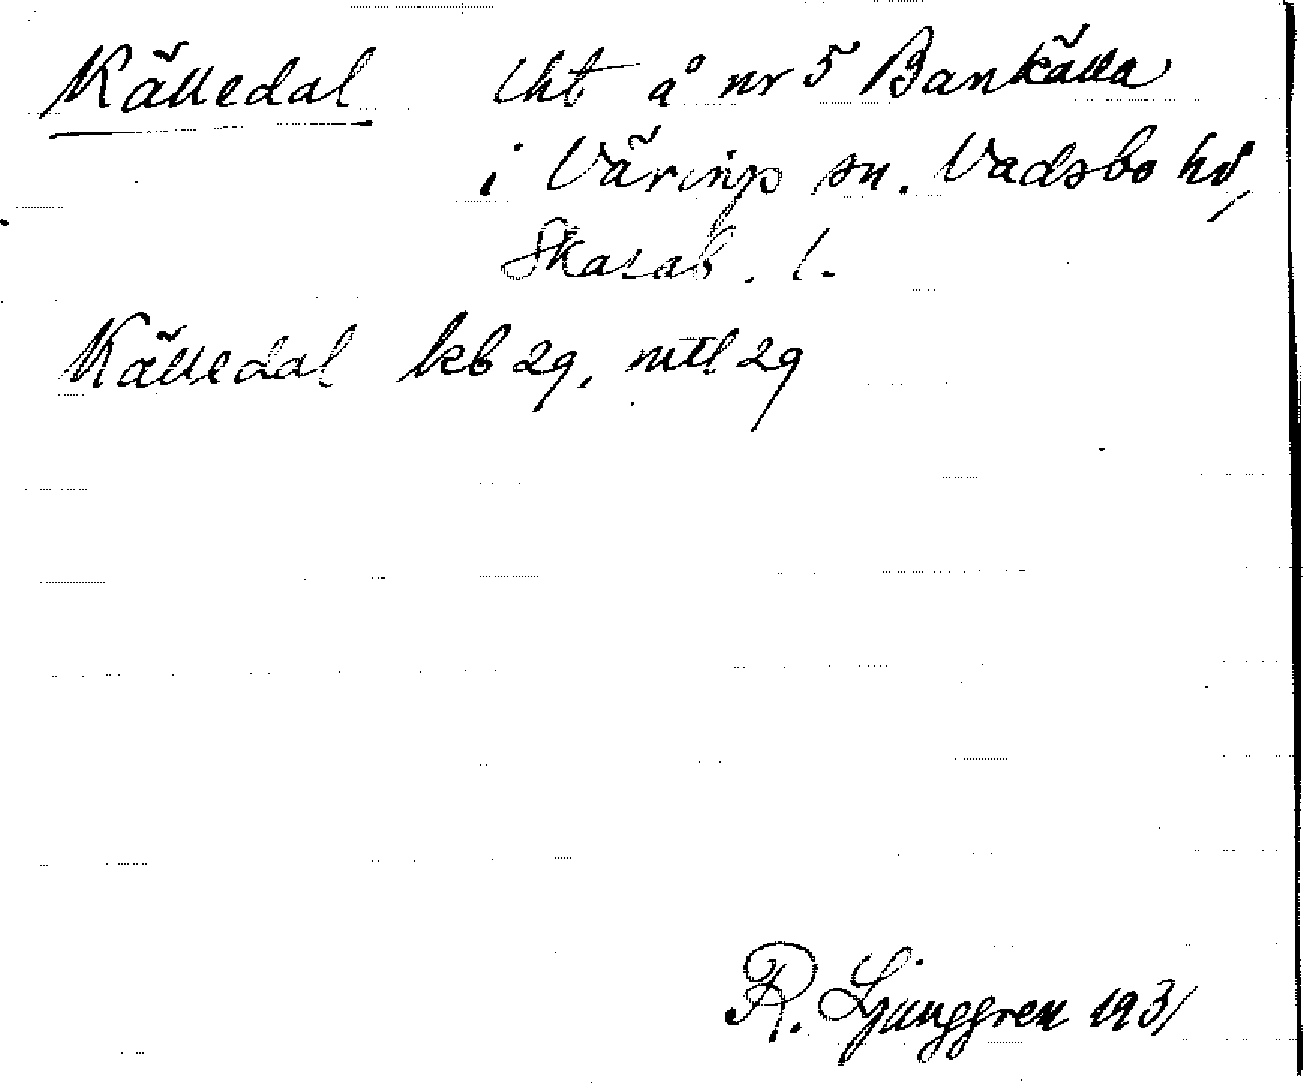 Källedal lht å nr 5 Bankälla
i Värings sn. Vadsbo hd,
Skarab. l.
Källedal kb 29, mtl 29
R. Ljunggren 1931